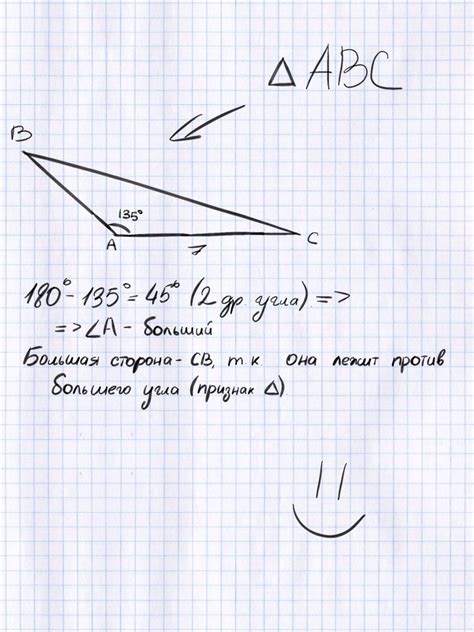 Δ ABC
B
135°
A
7
C
180° - 135° = 45° (2 др. угла) =>
=> ∠A - больший
Большая сторона - CB, т.к. она лежит против
большего угла (признак Δ)